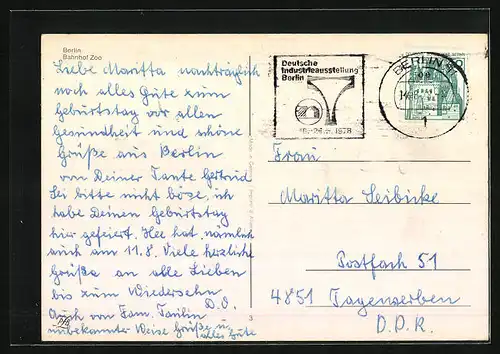 Berlin
Bahnhof Zoo
Liebe Maritta nachträglich
noch alles Gute zum
Geburtstag vor allen
Gesundheit und schöne
Grüße aus Berlin
von Deiner Tante Gertrud
Sei bitte nicht böse, ich
habe Deinen Geburtstag
hier gefeiert. Hee hat nämlich
auch am 11.8. Viele herzliche
Grüße an alle Lieben
bis zum Wiedersehn
D. O.
Auch von Fam.
unbekannter Weise Grüße u.
alles Gute
Deutsche
Industrieausstellung
Berlin
1978
BERLIN
1
Frau
Maritta Seibicke
Postfach 51
4851 Tagewerben
D.D.R.
3